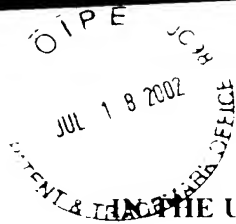 OIPE
JC98
JUL 18 2002
PATENT & TRADEMARK OFFICE
IN THE U